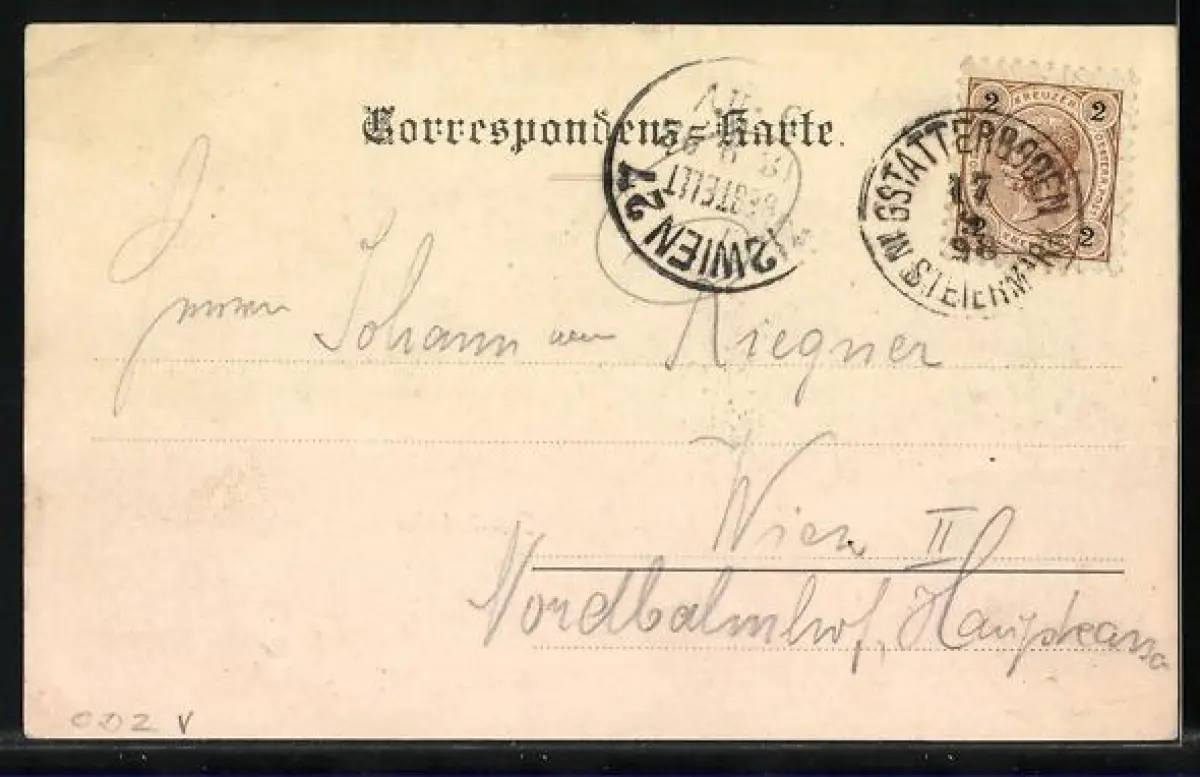 Correspondenz-Karte.
2 KREUZER 2
2 2
GSTATTERBODEN
17
98
STEIERMARK
WIEN 2/1
BESTELLT
Johann von Riegner
Wien II
Nordbahnhof, Hauptkassa